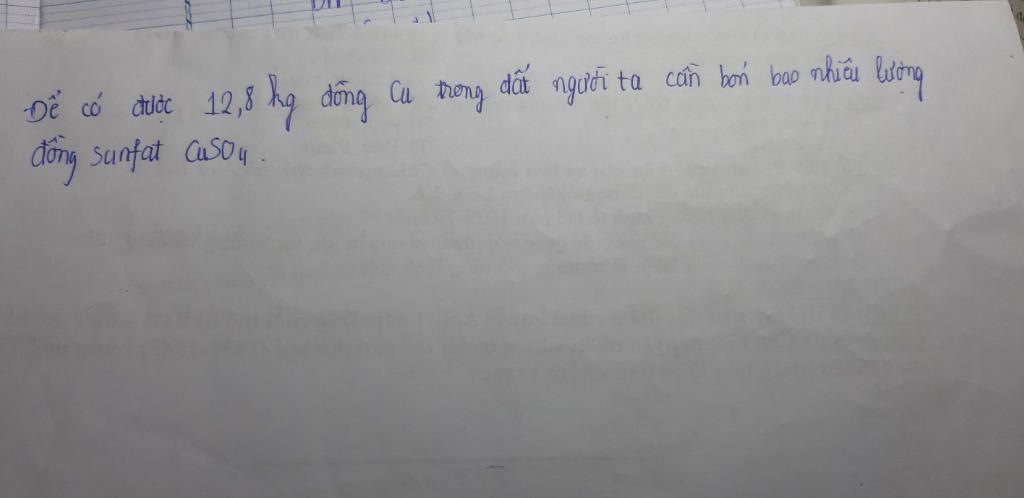 Để có được 12,8 kg đồng Cu trong đất người ta cần bón bao nhiêu lượng
đồng sunfat CuSO4.